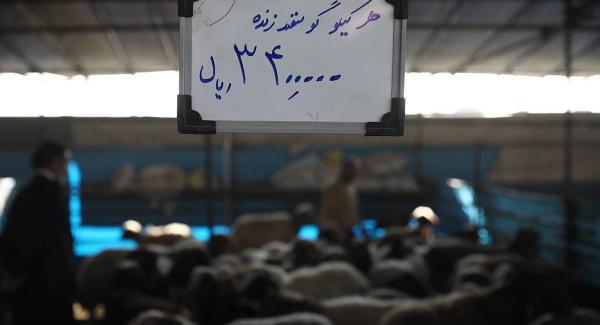 هر کیلو گوسفند زنده
۳۴۰,۰۰۰ ریال